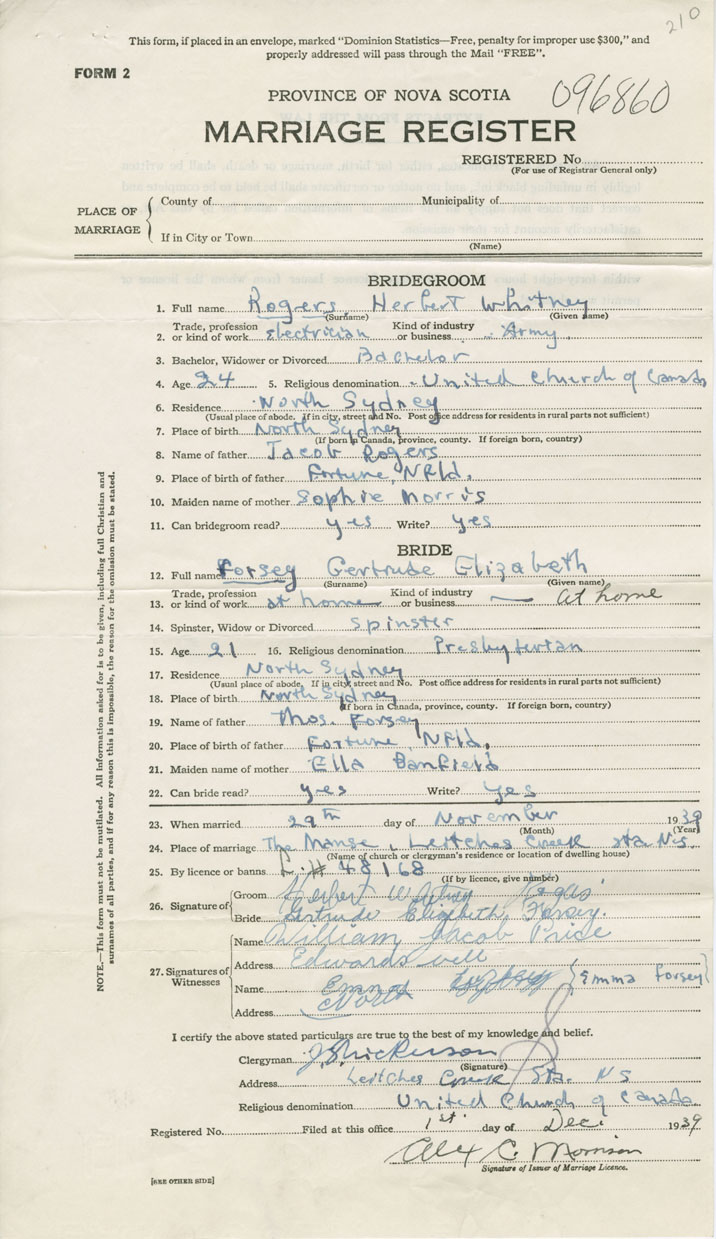 210
This form, if placed in an envelope, marked "Dominion Statistics—Free, penalty for improper use $300," and
properly addressed will pass through the Mail "FREE".
FORM 2
PROVINCE OF NOVA SCOTIA
096860
MARRIAGE REGISTER
REGISTERED No.
(For use of Registrar General only)
PLACE OF MARRIAGE
County of Municipality of
If in City or Town
(Name)
BRIDEGROOM
1. Full name Rogers, Herbert Whitney
(Surname) (Given name)
2. Trade, profession or kind of work electrician Kind of industry or business Army
3. Bachelor, Widower or Divorced Bachelor
4. Age 24 5. Religious denomination United Church of Canada
6. Residence North Sydney
(Usual place of abode. If in city, street and No. Post office address for residents in rural parts not sufficient)
7. Place of birth North Sydney
(If born in Canada, province, county. If foreign born, country)
8. Name of father Jacob Rogers
9. Place of birth of father Fortune, NFld.
10. Maiden name of mother Sophie Morris
11. Can bridegroom read? yes Write? yes
BRIDE
12. Full name Forsey Gertrude Elizabeth
(Surname) (Given name)
13. Trade, profession or kind of work at home Kind of industry or business — at home
14. Spinster, Widow or Divorced Spinster
15. Age 21 16. Religious denomination Presbyterian
17. Residence North Sydney
(Usual place of abode. If in city, street and No. Post office address for residents in rural parts not sufficient)
18. Place of birth North Sydney
(If born in Canada, province, county. If foreign born, country)
19. Name of father Thos. Forsey
20. Place of birth of father Fortune, NFld.
21. Maiden name of mother Ella Banfield
22. Can bride read? yes Write? yes
23. When married 29th day of November 1939
(Month) (Year)
24. Place of marriage The Manse, Leitches Creek Sta N.S.
(Name of church or clergyman's residence or location of dwelling house)
25. By licence or banns L. # 48168
(If by licence, give number)
26. Signature of
Groom Herbert Whitney Rogers
Bride Gertrude Elizabeth Forsey.
27. Signatures of Witnesses
Name William Jacob Price
Address Edwardsvell
Name Emma {Emma Forsey}
Address North
I certify the above stated particulars are true to the best of my knowledge and belief.
Clergyman
(Signature)
Address Leitches Creek Sta. NS
Religious denomination United Church of Canada
Registered No. Filed at this office 1st. day of Dec. 1939
Alex C. Morrison
Signature of Issuer of Marriage Licence.
[SEE OTHER SIDE]
NOTE.—This form must not be mutilated. All information asked for is to be given, including full Christian and
surnames of all parties, and if for any reason this is impossible, the reason for the omission must be stated.